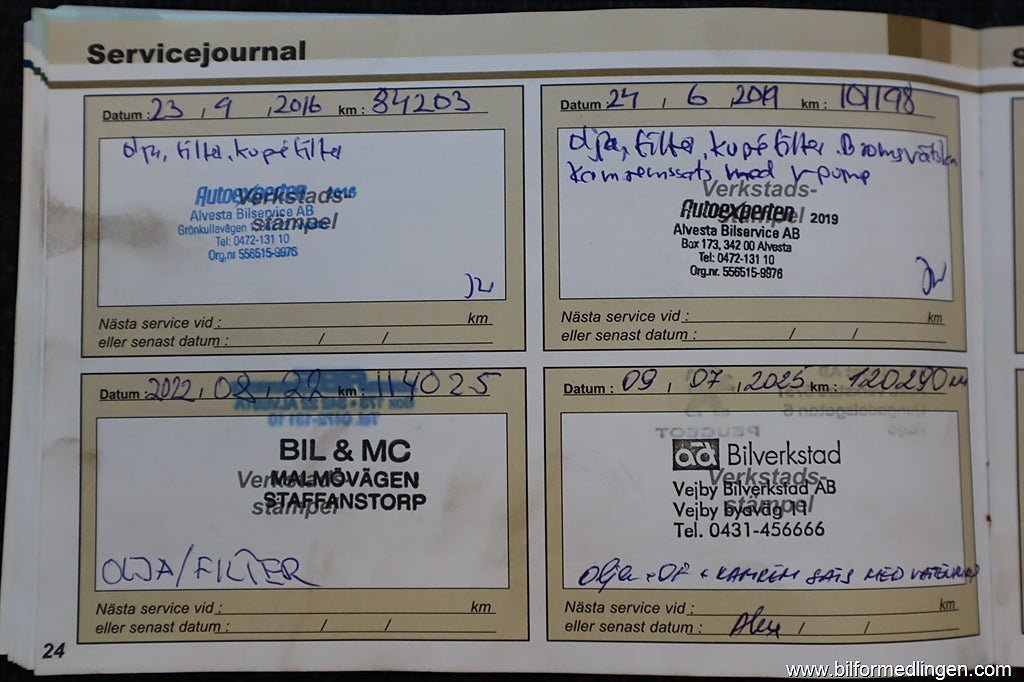 Servicejournal
Datum : 23 , 9 , 2016 km : 84203
olja, filter, kupéfilter
Autoexperten 2016
Verkstads-
stämpel
Alvesta Bilservice AB
Grönkullavägen
Tel: 0472-131 10
Org.nr 556515-9976
Nästa service vid : km
eller senast datum : / /
Datum : 24 , 6 , 2019 km : 101198
olja, filter, kupéfilter. Bromsvätska
Kamremssats med v-pump
Verkstads-
stämpel
Autoexperten 2019
Alvesta Bilservice AB
Box 173, 342 00 Alvesta
Tel: 0472-131 10
Org.nr. 556515-9976
Nästa service vid : km
eller senast datum : / /
Datum : 2022 , 08 , 22 km : 114025
BIL & MC
MALMÖVÄGEN
STAFFANSTORP
Verkstads-
stämpel
OLJA/FILTER
Nästa service vid : km
eller senast datum : / /
Datum : 09 , 07 , 2025 km : 120290
PEUGEOT
ad Bilverkstad
Verkstads-
stämpel
Vejby Bilverkstad AB
Vejby byaväg 11
Tel. 0431-456666
Olja + OF + KAMREM SATS MED
Nästa service vid : km
eller senast datum : / /
24
www.bilformedlingen.com